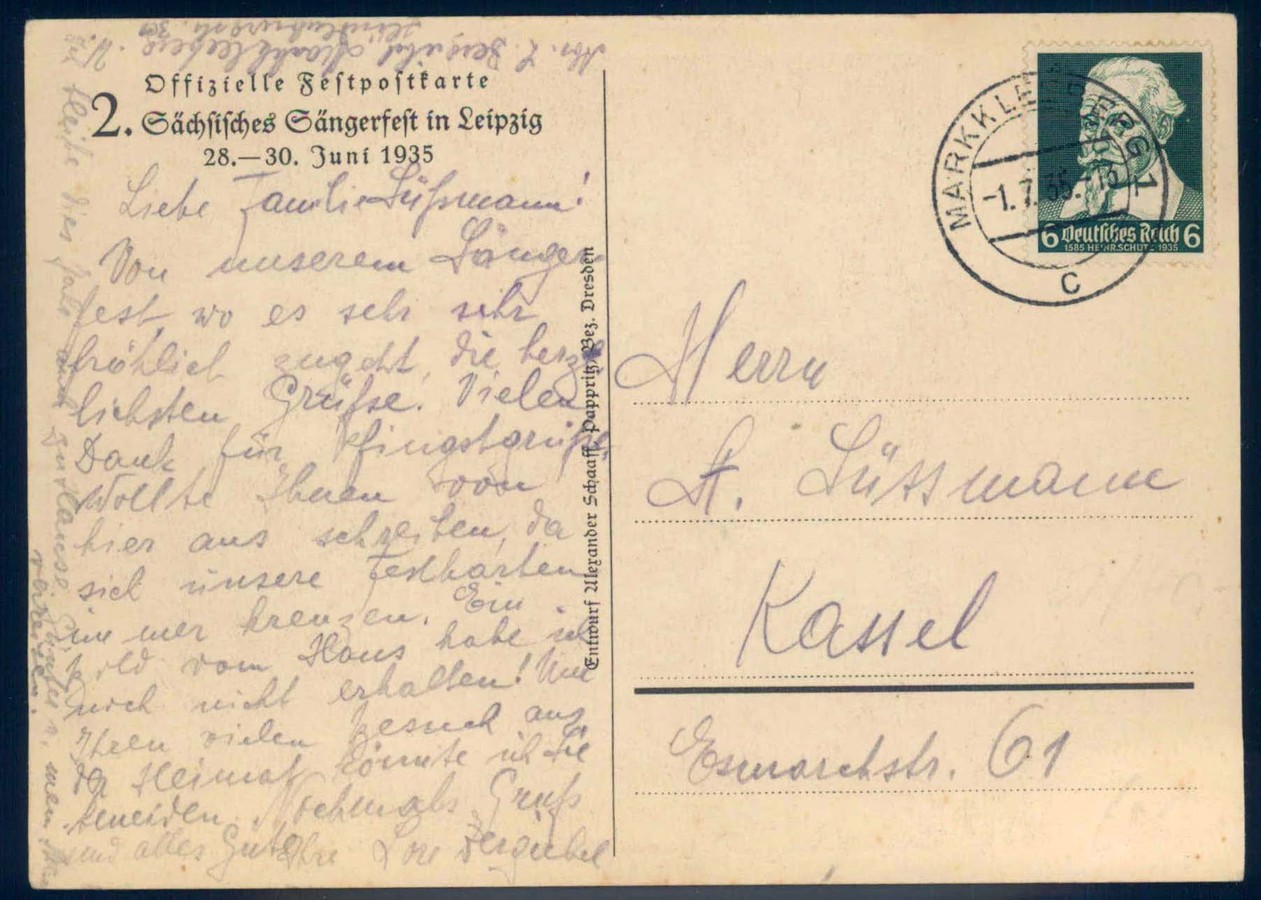 Offizielle Festpostkarte
2. Sächsisches Sängerfest in Leipzig
28.—30. Juni 1935
Liebe Familie Süßmann!
Von unserem Sänger
fest, wo es sehr sehr
fröhlich zugeht, die herz
lichsten Grüße. Vielen
Dank für Pfingstgrüße
Wollte Ihnen von
hier aus schreiben, da
sich unsere Festkarten
immer kreuzen. Ein
Bild vom Haus habe ich
noch nicht erhalten! Um
Ihren vielen Besuch aus
der Heimat könnte ich Sie
beneiden. Nochmals Gruß
und alles Gute Ihre Lore
Entwurf Alexander Schaaff, Pappritz, Bez. Dresden
MARKKLEEBERG 1
-1.7.35.
C
6 Deutsches Reich 6
1585 HEINR. SCHÜTZ 1935
Herrn
A. Süssmann
Kassel
Esmarchstr. 61